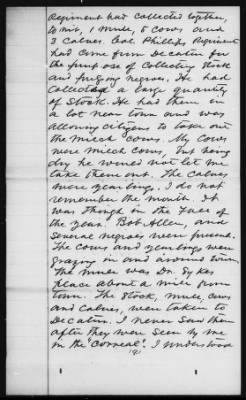 Regiment had collected together,
to wit, 1 mule, 5 cows and
3 calves. Col. Phillips Regiment
had come from Decatur for
the purpose of collecting stock
and pressing negroes. He had
collected a large quantity
of stock. He had them in
a lot near town and was
allowing citizens to take out
the milch cows. My cows
were milch cows, but being
dry he would not let me
take them out. The calves
were yearlings. I do not
remember the month. It
was though in the Fall of
the year. Bob Allen, and
several negroes were present.
The cows and yearlings were
grazing in and around town.
The mule was Dr. Sykes
place about a mile from
town. The stock, mule, cows
and calves, were taken to
Decatur. I never saw them
after they were seen by me
in the "correal". I understood